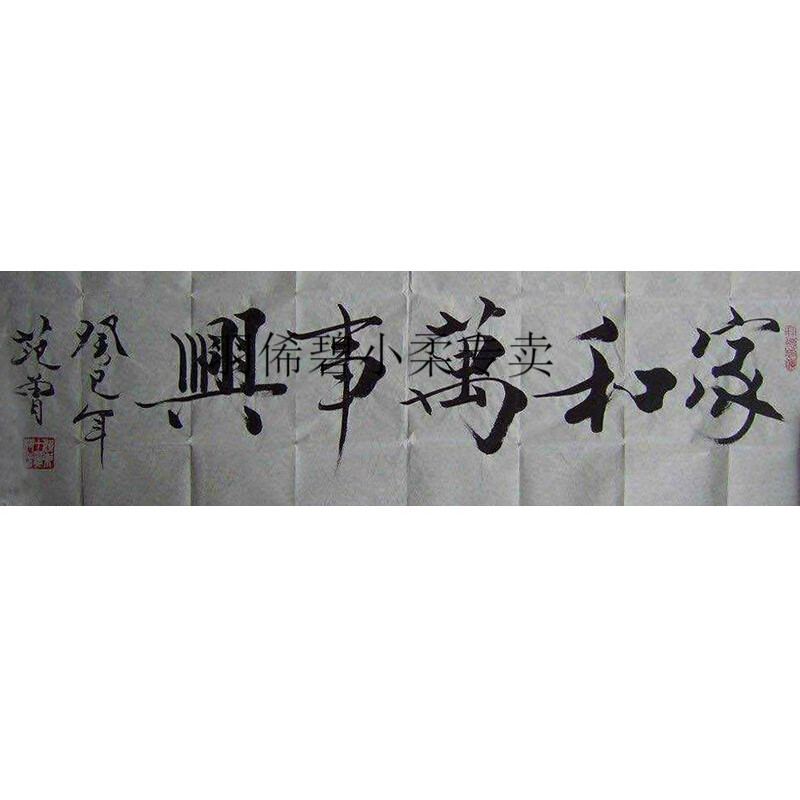 家和萬事興
癸巳年
范曾
俙碧小柔专卖